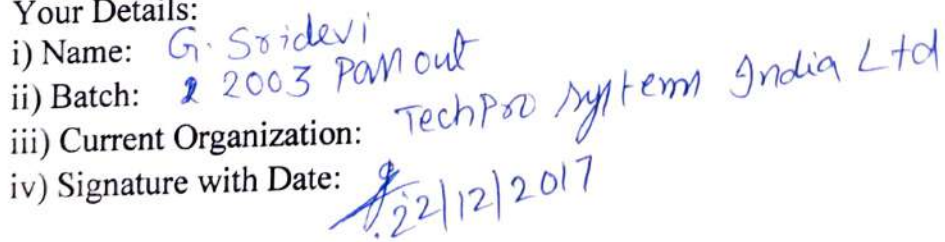 Your Details:
i) Name: G. Sridevi
ii) Batch: 2003 Pass out
iii) Current Organization: TechPro systems India Ltd
iv) Signature with Date: 22/12/2017